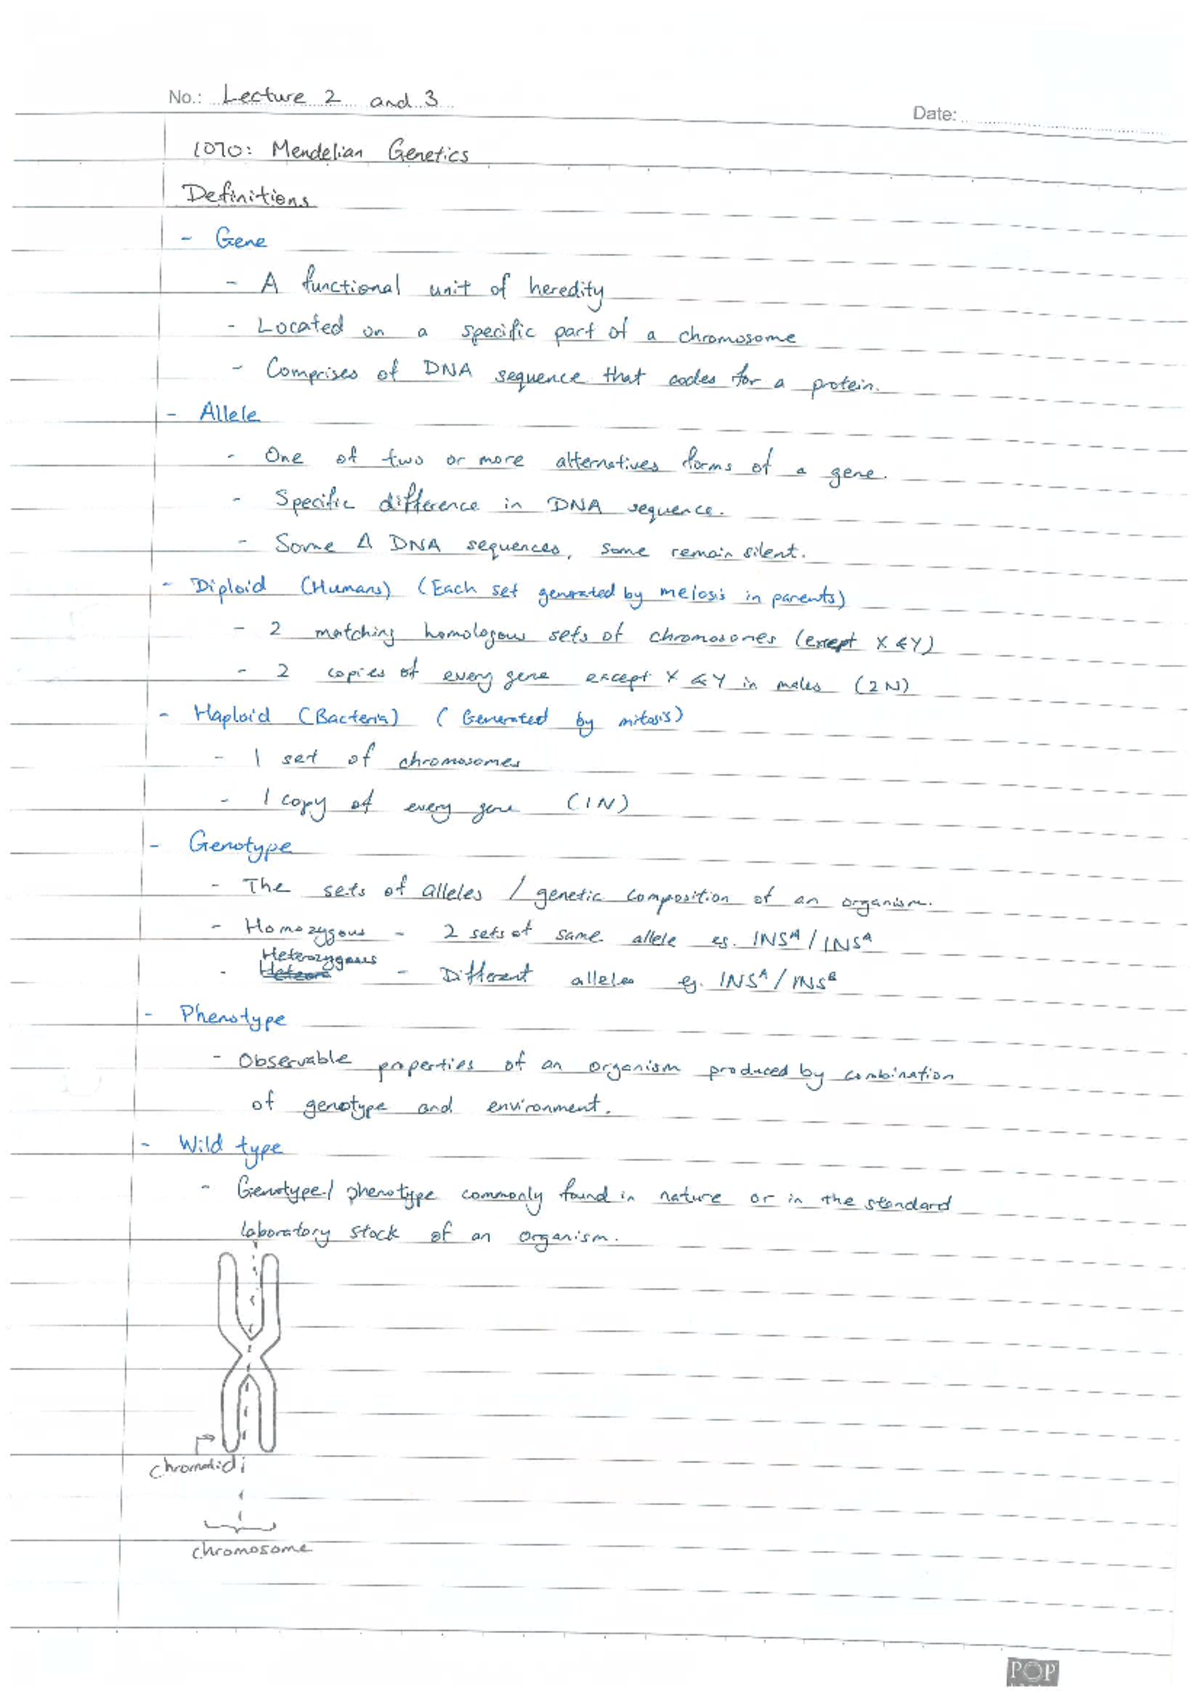 No.: Lecture 2 and 3
Date:
1070: Mendelian Genetics
Definitions
- Gene
- A functional unit of heredity
- Located on a specific part of a chromosome
- Comprises of DNA sequence that codes for a protein.
- Allele
- One of two or more alternatives forms of a gene.
- Specific difference in DNA sequence.
- Some Δ DNA sequences, some remain silent.
- Diploid (Humans) (Each set generated by meiosis in parents)
- 2 matching homologous sets of chromosomes (except X & Y)
- 2 copies of every gene except X & Y in males (2N)
- Haploid (Bacteria) (Generated by mitosis)
- 1 set of chromosomes
- 1 copy of every gene (1N)
- Genotype
- The sets of alleles / genetic composition of an organism.
- Homozygous - 2 sets of same allele eg. INSᴬ/INSᴬ
- Heterozygous - Different alleles eg. INSᴬ/INSᴮ
- Phenotype
- Observable properties of an organism produced by combination
of genotype and environment.
- Wild type
- Genotype/phenotype commonly found in nature or in the standard
laboratory stock of an organism.
chromatid
chromosome
POP